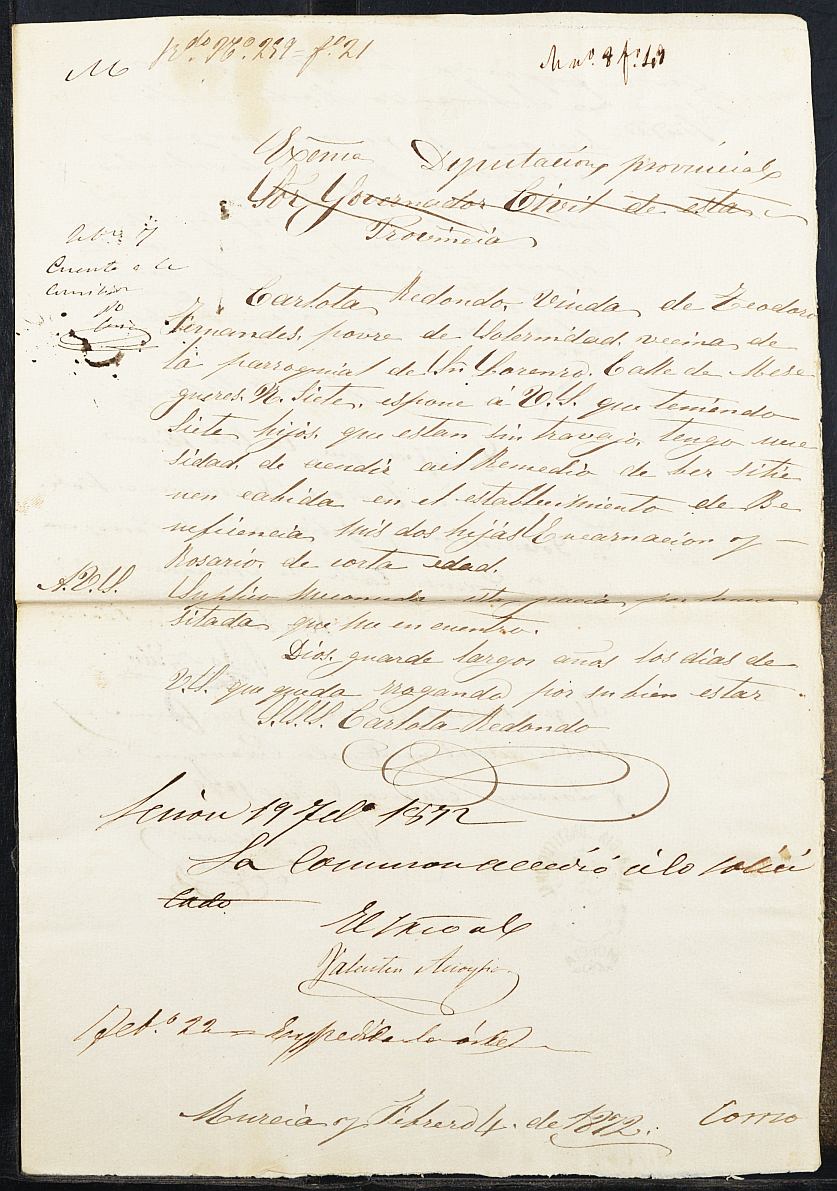 M
Rdo. Nº. 239 = fº. 21
M nº. 8 fº. 40
Exema Diputacion provincial
Sor Governador Civil de esta
Provincia
Cuenta a la
Comision
Carlota Redondo, Viuda de Teodoro
Fernandes, povre de Solernidad, vecina de
la parroquial de Sn Lorenzo, Calle de Mese
gueres, N. Siete, espone á V.S. que teniendo
Siete hijos, que estan sin travajo, tengo nece
sidad, de acudir al Remedio de ber si tie
nen cabida en el establecimiento de Be
neficencia mis dos hijas Encarnacion y
Rosario, de corta edad.
A.V.S.
Suplico me conceda esta gracia por lo nece
sitada que me encuentro.
Dios guarde largos años los dias de
V.S. que queda rrogando por su bien estar
S.S.S. Carlota Redondo
Sesion 19 Febº 1872
La Comision accedió á lo solici
tado
El Srio al
Valentin
Feb.º 22 = Expedida la órden
Murcia y Febrero 4. de 1872.